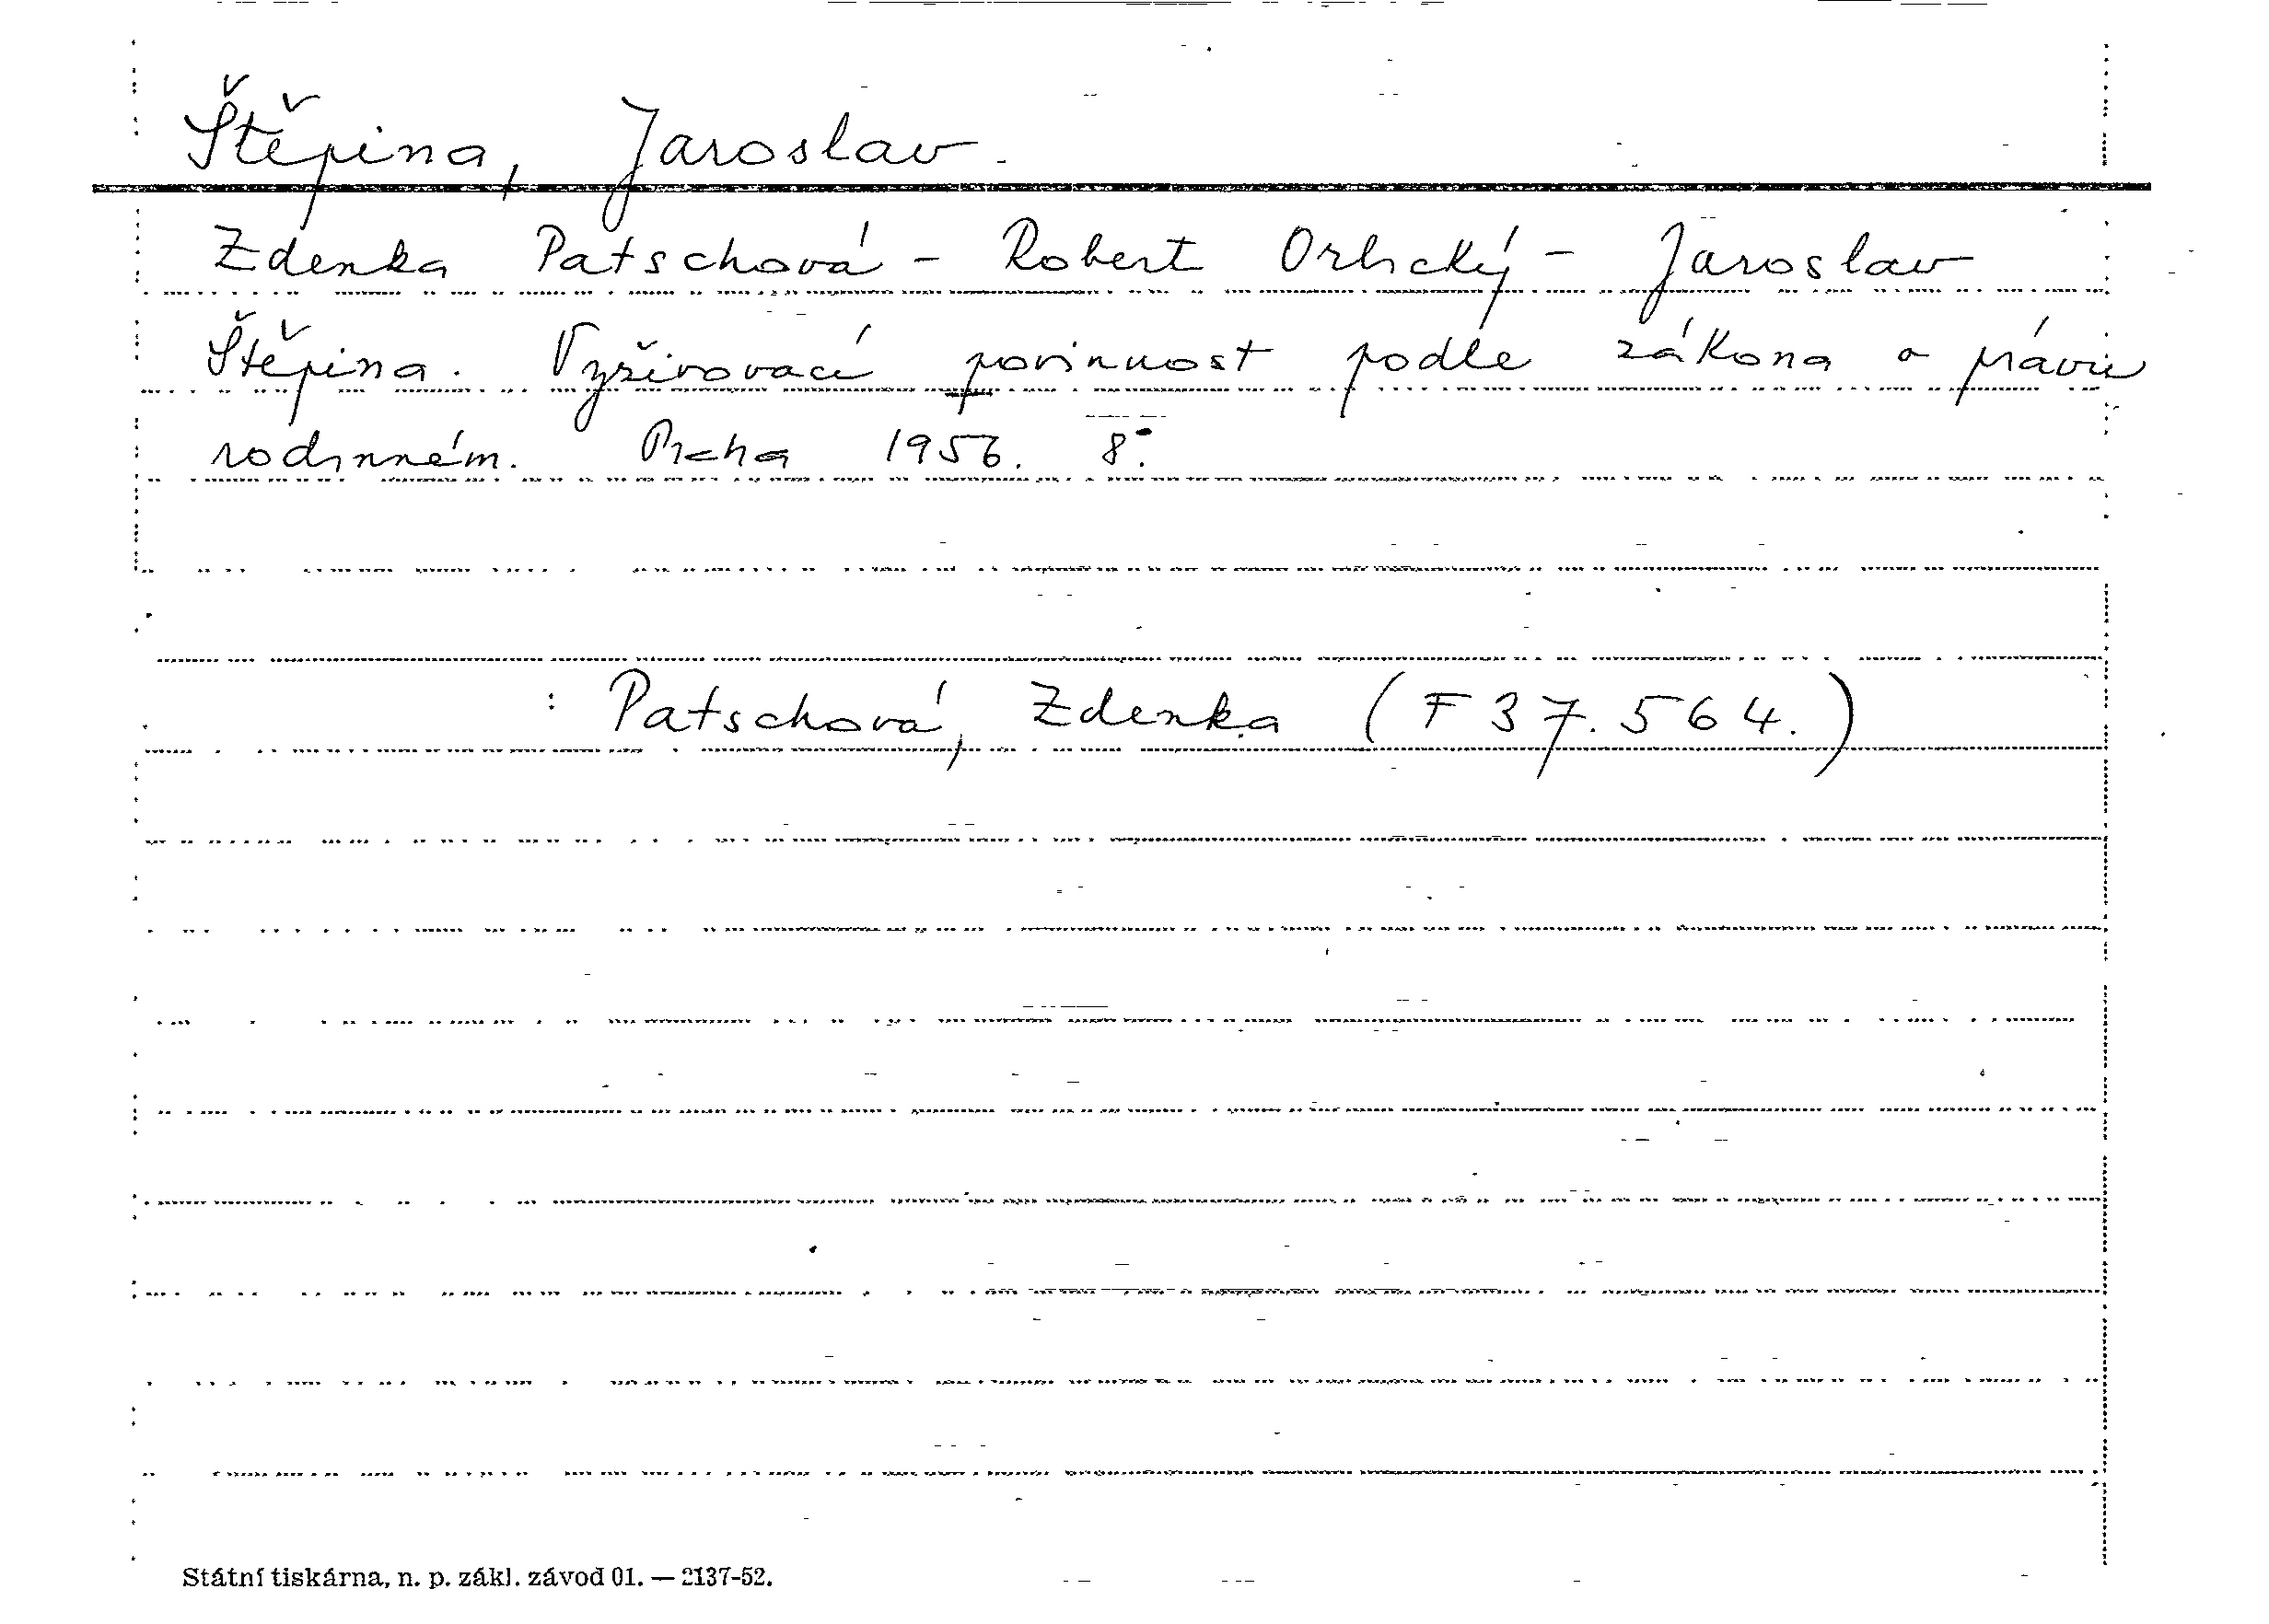 Štěpina, Jaroslav.
Zdenka Patschová - Robert Orlický - Jaroslav
Štěpina. Vyživovací povinnost podle zákona o právu
rodinném. Praha 1956. 8°.
: Patschová, Zdenka (F 37.564.)
Státní tiskárna, n. p. zákl. závod 01. — 2137-52.